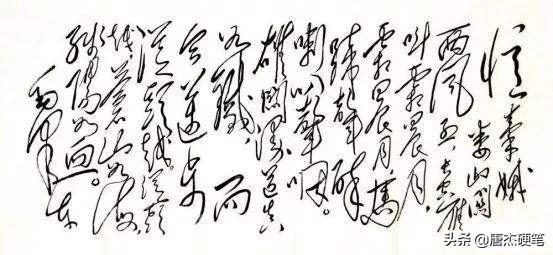 忆秦娥
娄山关
西风烈长空雁
叫霜晨月，
霜晨月马
蹄声碎
喇叭声咽。
雄关漫道真
如铁，而
今迈步
从头越。从头
越苍山如海，
残阳如血。
毛泽东
头条 @唐杰硬笔